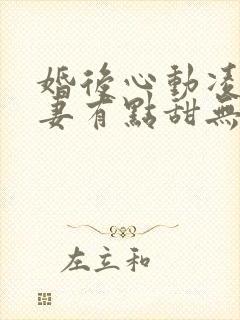 婚後心動凌
妻有點甜無
左立和